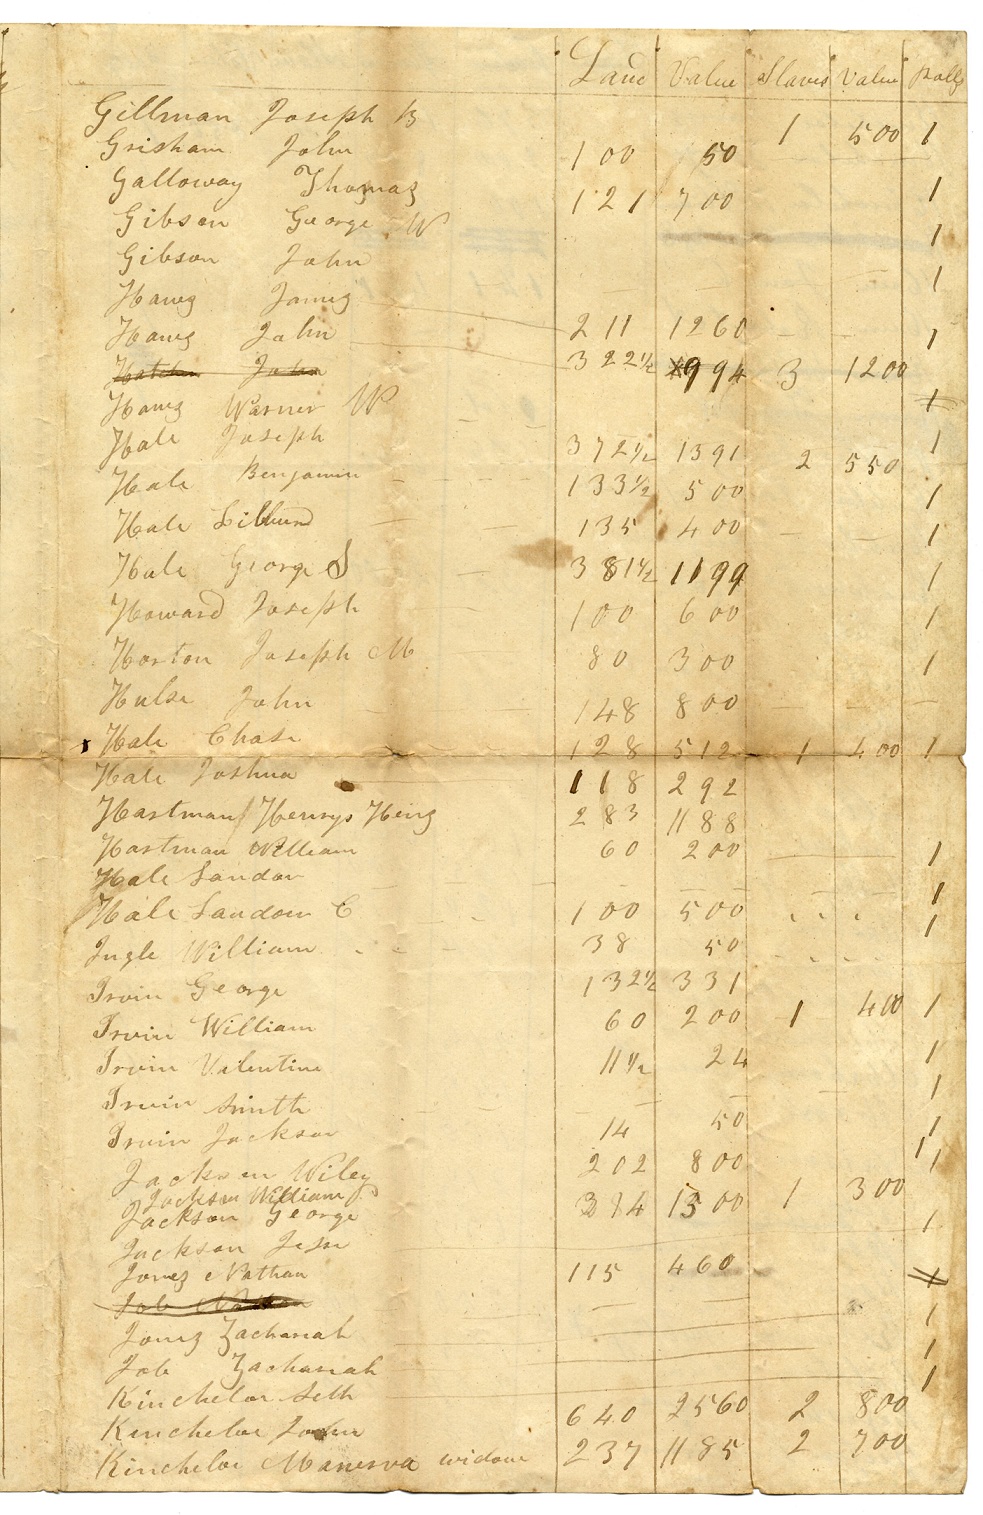 Land Value Slaves Value Polls
Gillman Joseph B 1 500 1
Grisham John 100 50
Galloway Thomas 121 700 1
Gibson George W 1
Gibson John 1
Hawz James
Hawz John 211 1260 1
John 322½ 994 3 1200
Hawz Warner W 1
Hale Joseph 372½ 1391 2 550 1
Hale Benjamin 133½ 500 1
Hale 135 400 1
Hale George S 381½ 1199 1
Howard Joseph 100 600 1
Horton Joseph M 80 300 1
Hulse John 148 800
Hale Chase 128 512 1 400 1
Hale Joshua 118 292
Hartman Henrys Heirz 283 1188
Hartman William 60 200 1
Hale Landon 1
Hale Landon C 100 500 1
Ingle William 38 50
Irvin George 132½ 331
Irvin William 60 200 1 400 1
Irvin Valentine 11½ 24 1
Irvin Smith 1
Irvin Jackson 14 50 1
Jackson Wiley 202 800 1 1
Jackson William
Jackson George 1500 1 300
Jackson Jesse 1
Jonez Nathan 115 460
Job 1
Jonez Zachariah 1
Job Zachariah 1
Kincheloe Seth 1
Kincheloe John 640 2560 2 800
Kincheloe Manerva widow 237 1185 2 700